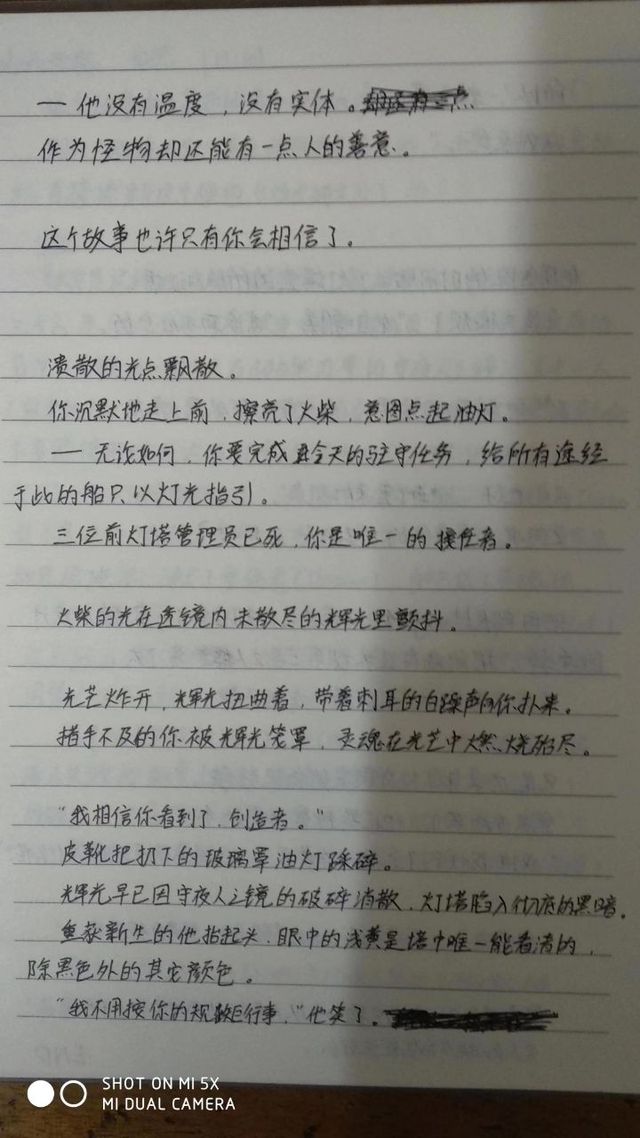 — 他没有温度，没有实体。
作为怪物却还能有一点人的善意。
这个故事也许只有你会相信了。
溃散的光点飘散。
你沉默地走上前，擦亮了火柴，意图点起油灯。
— 无论如何，你要完成今天的驻守任务，给所有途经
于此的船只以灯光指引。
三位前灯塔管理员已死，你是唯一的接任者。
火柴的光在透镜内未散尽的辉光里颤抖。
光芒炸开，辉光扭曲着，带着刺耳的白噪声向你扑来。
措手不及的你被辉光笼罩，灵魂在光芒中燃烧殆尽。
“我相信你看到了，创造者。”
皮靴把扔下的玻璃罩油灯踩碎。
辉光早已因守夜人之镜的破碎消散，灯塔陷入彻底的黑暗。
重获新生的他抬起头，眼中的浅黄是塔中唯一能看清的，
除黑色外的其它颜色。
“我不用按你的规矩行事，”他笑了。
SHOT ON MI 5X
MI DUAL CAMERA